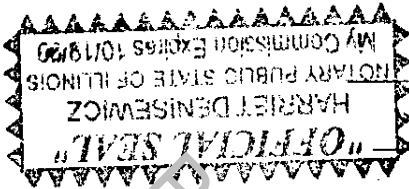 "OFFICIAL SEAL"
HARRIET DENISEWICZ
NOTARY PUBLIC STATE OF ILLINOIS
My Commission Expires 10/19/99